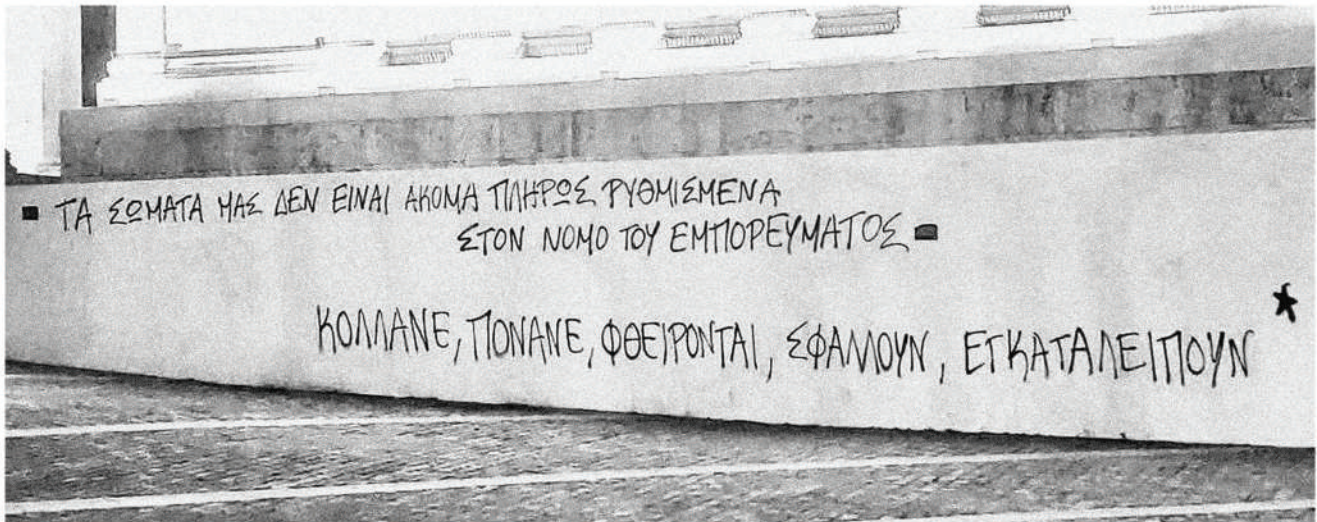 ΤΑ ΣΩΜΑΤΑ ΜΑΣ ΔΕΝ ΕΙΝΑΙ ΑΚΟΜΑ ΠΛΗΡΩΣ ΡΥΘΜΙΣΜΕΝΑ
ΣΤΟΝ ΝΟΜΟ ΤΟΥ ΕΜΠΟΡΕΥΜΑΤΟΣ
ΚΟΛΛΑΝΕ, ΠΟΝΑΝΕ, ΦΘΕΙΡΟΝΤΑΙ, ΣΦΑΛΛΟΥΝ, ΕΓΚΑΤΑΛΕΙΠΟΥΝ